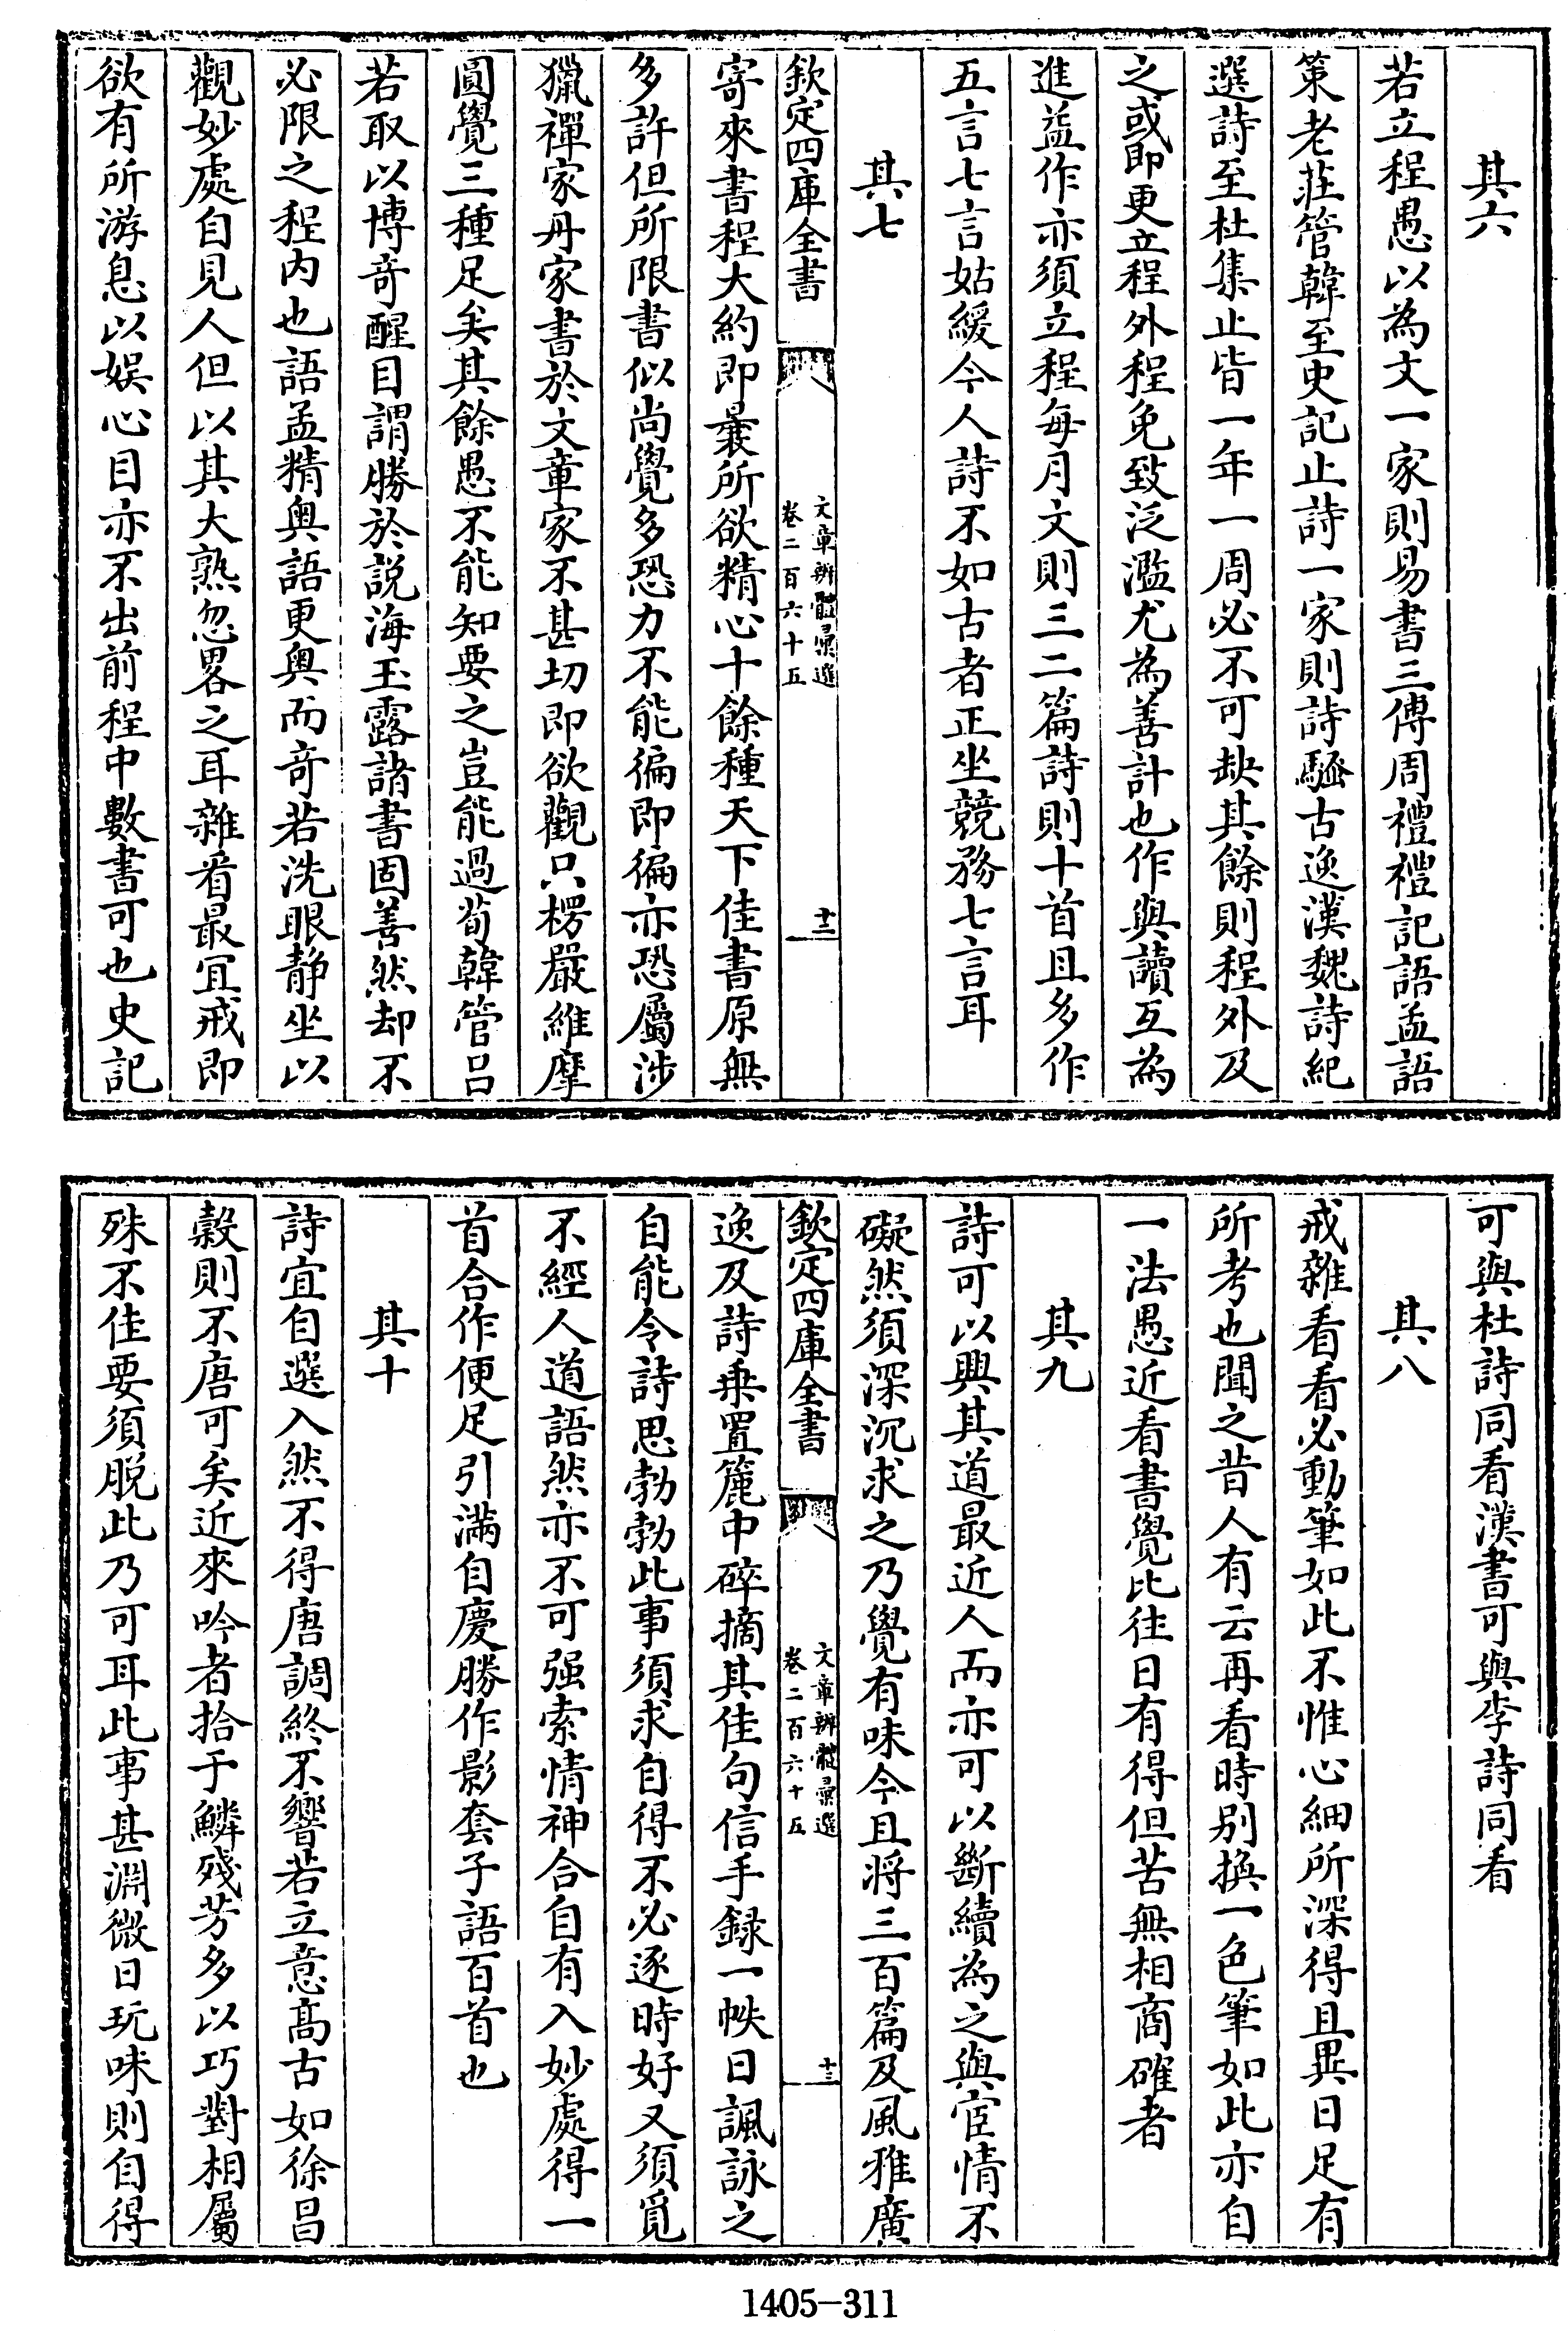 其六
若立程愚以為文一家則易書三傳周禮禮記語孟語
策老莊管韓至史記止詩一家則詩騷古逸漢魏詩紀
選詩至杜集止皆一年一周必不可缺其餘則程外及
之或即更立程外程免致泛濫尤為善計也作與讀互為
進益作亦須立程每月文則三二篇詩則十首且多作
五言七言姑緩今人詩不如古者正坐競務七言耳
其七
欽定四庫全書
文章辨體彙選
卷二百六十五
十二
寄來書程大約即曩所欲精心十餘種天下佳書原無
多許但所限書似尚覺多恐力不能徧即徧亦恐屬涉
獵禪家丹家書於文章家不甚切即欲觀只楞嚴維摩
圓覺三種足矣其餘愚不能知要之豈能過荀韓管呂
若取以博奇醒目謂勝於說海玉露諸書固善然却不
必限之程內也語孟精奧語更奧而奇若洗眼靜坐以
觀妙處自見人但以其大熟忽畧之耳雜看最宜戒即
欲有所游息以娛心目亦不出前程中數書可也史記
可與杜詩同看漢書可與李詩同看
其八
戒雜看看必動筆如此不惟心細所深得且異日足有
所考也聞之昔人有云再看時别換一色筆如此亦自
一法愚近看書覺比往日有得但苦無相商確者
其九
詩可以興其道最近人而亦可以斷續為之與宦情不
礙然須深沉求之乃覺有味今且將三百篇及風雅廣
欽定四庫全書
文章辨體彙選
卷二百六十五
十三
逸及詩乗置簏中碎摘其佳句信手録一帙日諷詠之
自能令詩思勃勃此事須求自得不必逐時好又須覓
不經人道語然亦不可强索情神合自有入妙處得一
首合作便足引滿自慶勝作影套子語百首也
其十
詩宜自選入然不得唐調終不響若立意髙古如徐昌
穀則不唐可矣近來吟者拾于鱗殘芳多以巧對相屬
殊不佳要須脫此乃可耳此事甚淵微日玩味則自得
1405-311